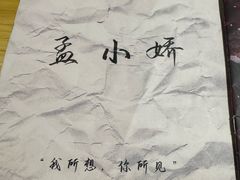 孟小娇
“我所想，你所见”